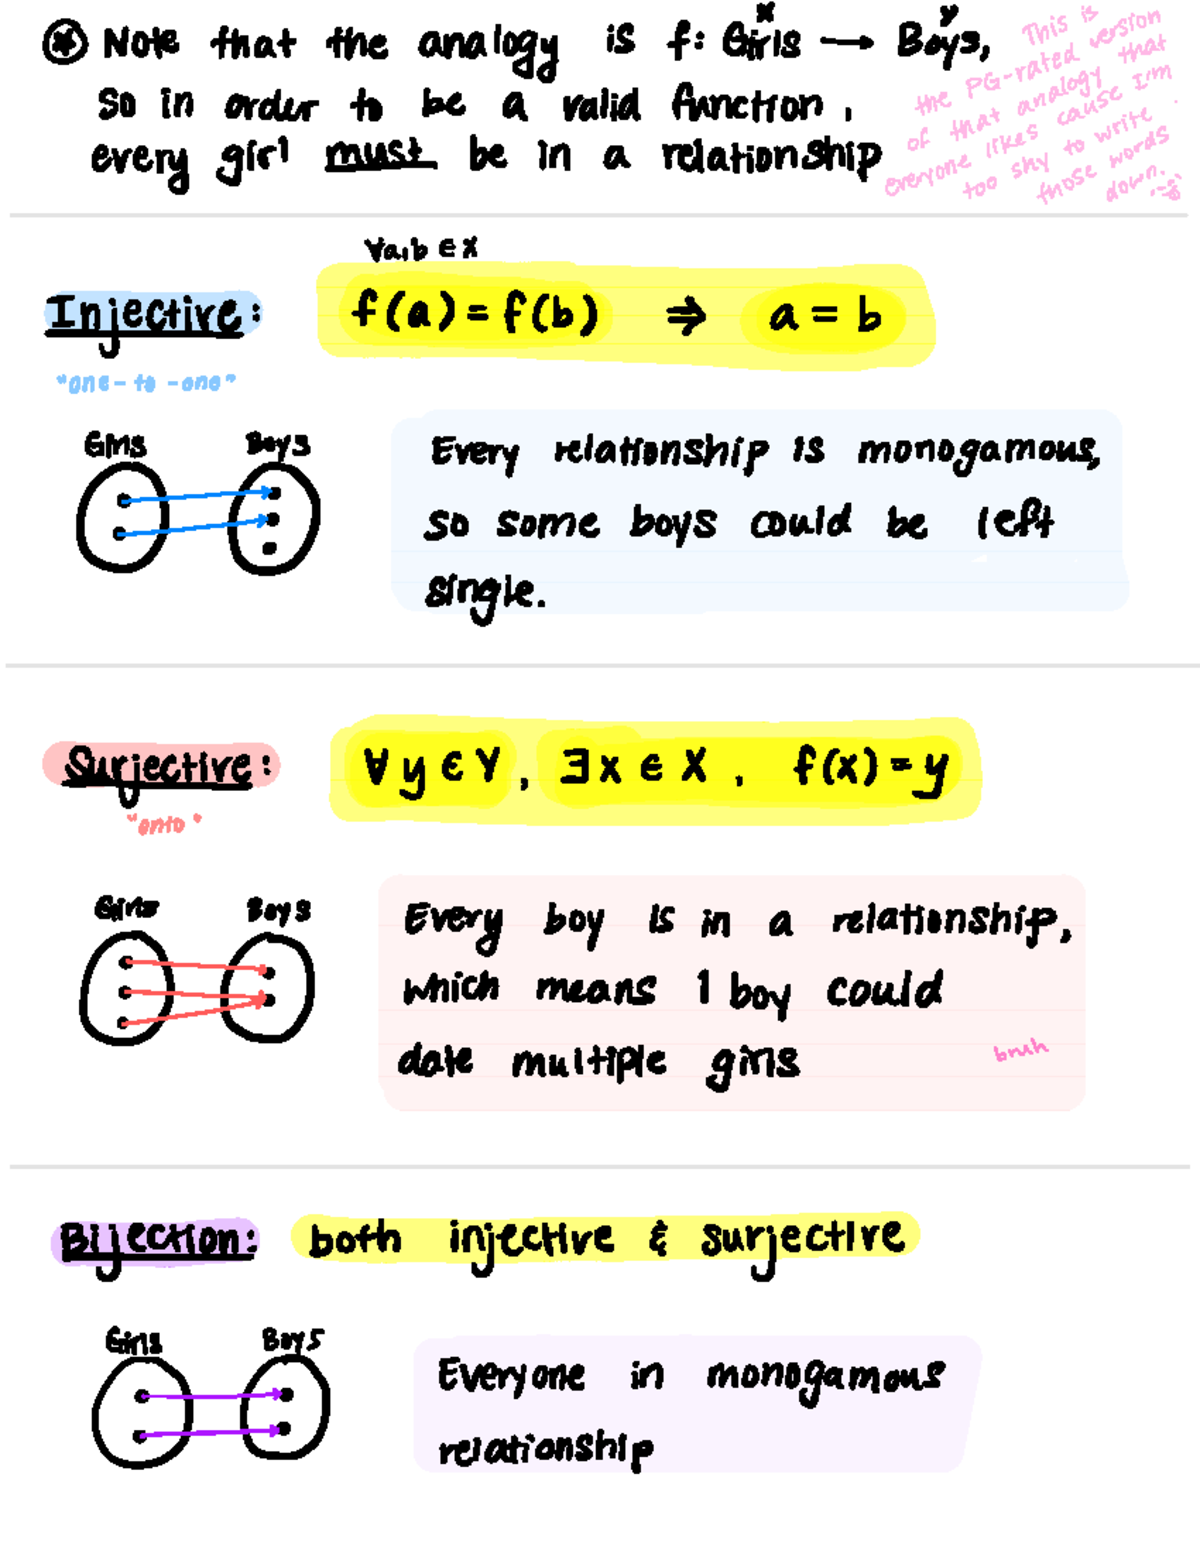 ⊛ Note that the analogy is f: Girls → Boys,
x y
so in order to be a valid function,
every girl must be in a relationship
This is
the PG-rated version
of that analogy that
everyone likes cause I'm
too shy to write
those words
down.
∀a,b ∈ X
Injective: f(a) = f(b) ⇒ a = b
"one-to-one"
Girls Boys
Every relationship is monogamous,
so some boys could be left
single.
Surjective: ∀ y ∈ Y, ∃ x ∈ X, f(x) = y
"onto"
Girls Boys
Every boy is in a relationship,
which means 1 boy could
date multiple girls
bruh
Bijection: both injective & surjective
Girls Boys
Everyone in monogamous
relationship